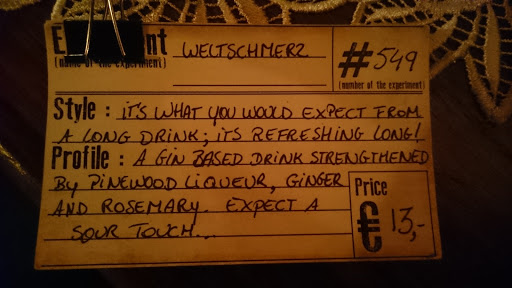 WELTSCHMERZ
(name of the experiment)
#549
(number of the experiment)
Style : IT'S WHAT YOU WOULD EXPECT FROM
A LONG DRINK; ITS REFRESHING LONG!
Profile : A GIN BASED DRINK STRENGTHENED
BY PINEWOOD LIQUEUR, GINGER
AND ROSEMARY. EXPECT A
SOUR TOUCH...
Price
€ 13,-